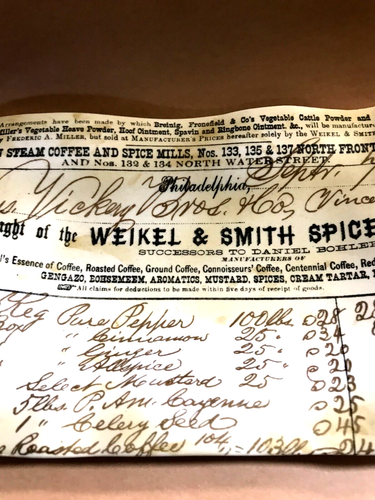 Arrangements have been made by which Breinig, Fronefield & Co's Vegetable Cattle Powder and
Miller's Vegetable Heave Powder, Hoof Ointment, Spavin and Ringbone Ointment, &c., will be manufactur
by FREDERIC A. MILLER, but sold at MANUFACTURER'S PRICES hereafter solely by the WEIKEL & SMITH
STEAM COFFEE AND SPICE MILLS, Nos. 133, 135 & 137 NORTH FRONT
AND Nos. 132 & 134 NORTH WATER STREET.
Philadelphia, Sept.
Vickery Bros. & Co,
ught of the WEIKEL & SMITH SPICE
SUCCESSORS TO DANIEL BOHLER
MANUFACTURERS OF
l's Essence of Coffee, Roasted Coffee, Ground Coffee, Connoisseurs' Coffee, Centennial Coffee, Red
GENGAZO, BOHSEMEEM, AROMATICS, MUSTARD, SPICES, CREAM TARTAR,
All claims for deductions to be made within five days of receipt of goods.
Keg Pure Pepper 100 lbs 28 28
Box " Cinnamon 25 34
" Ginger 25 20
" Allspice 25 20
Select Mustard 25 23
5 lbs. P. Am. Cayenne 25
1 " Celery Seed 45
Roasted Coffee 104